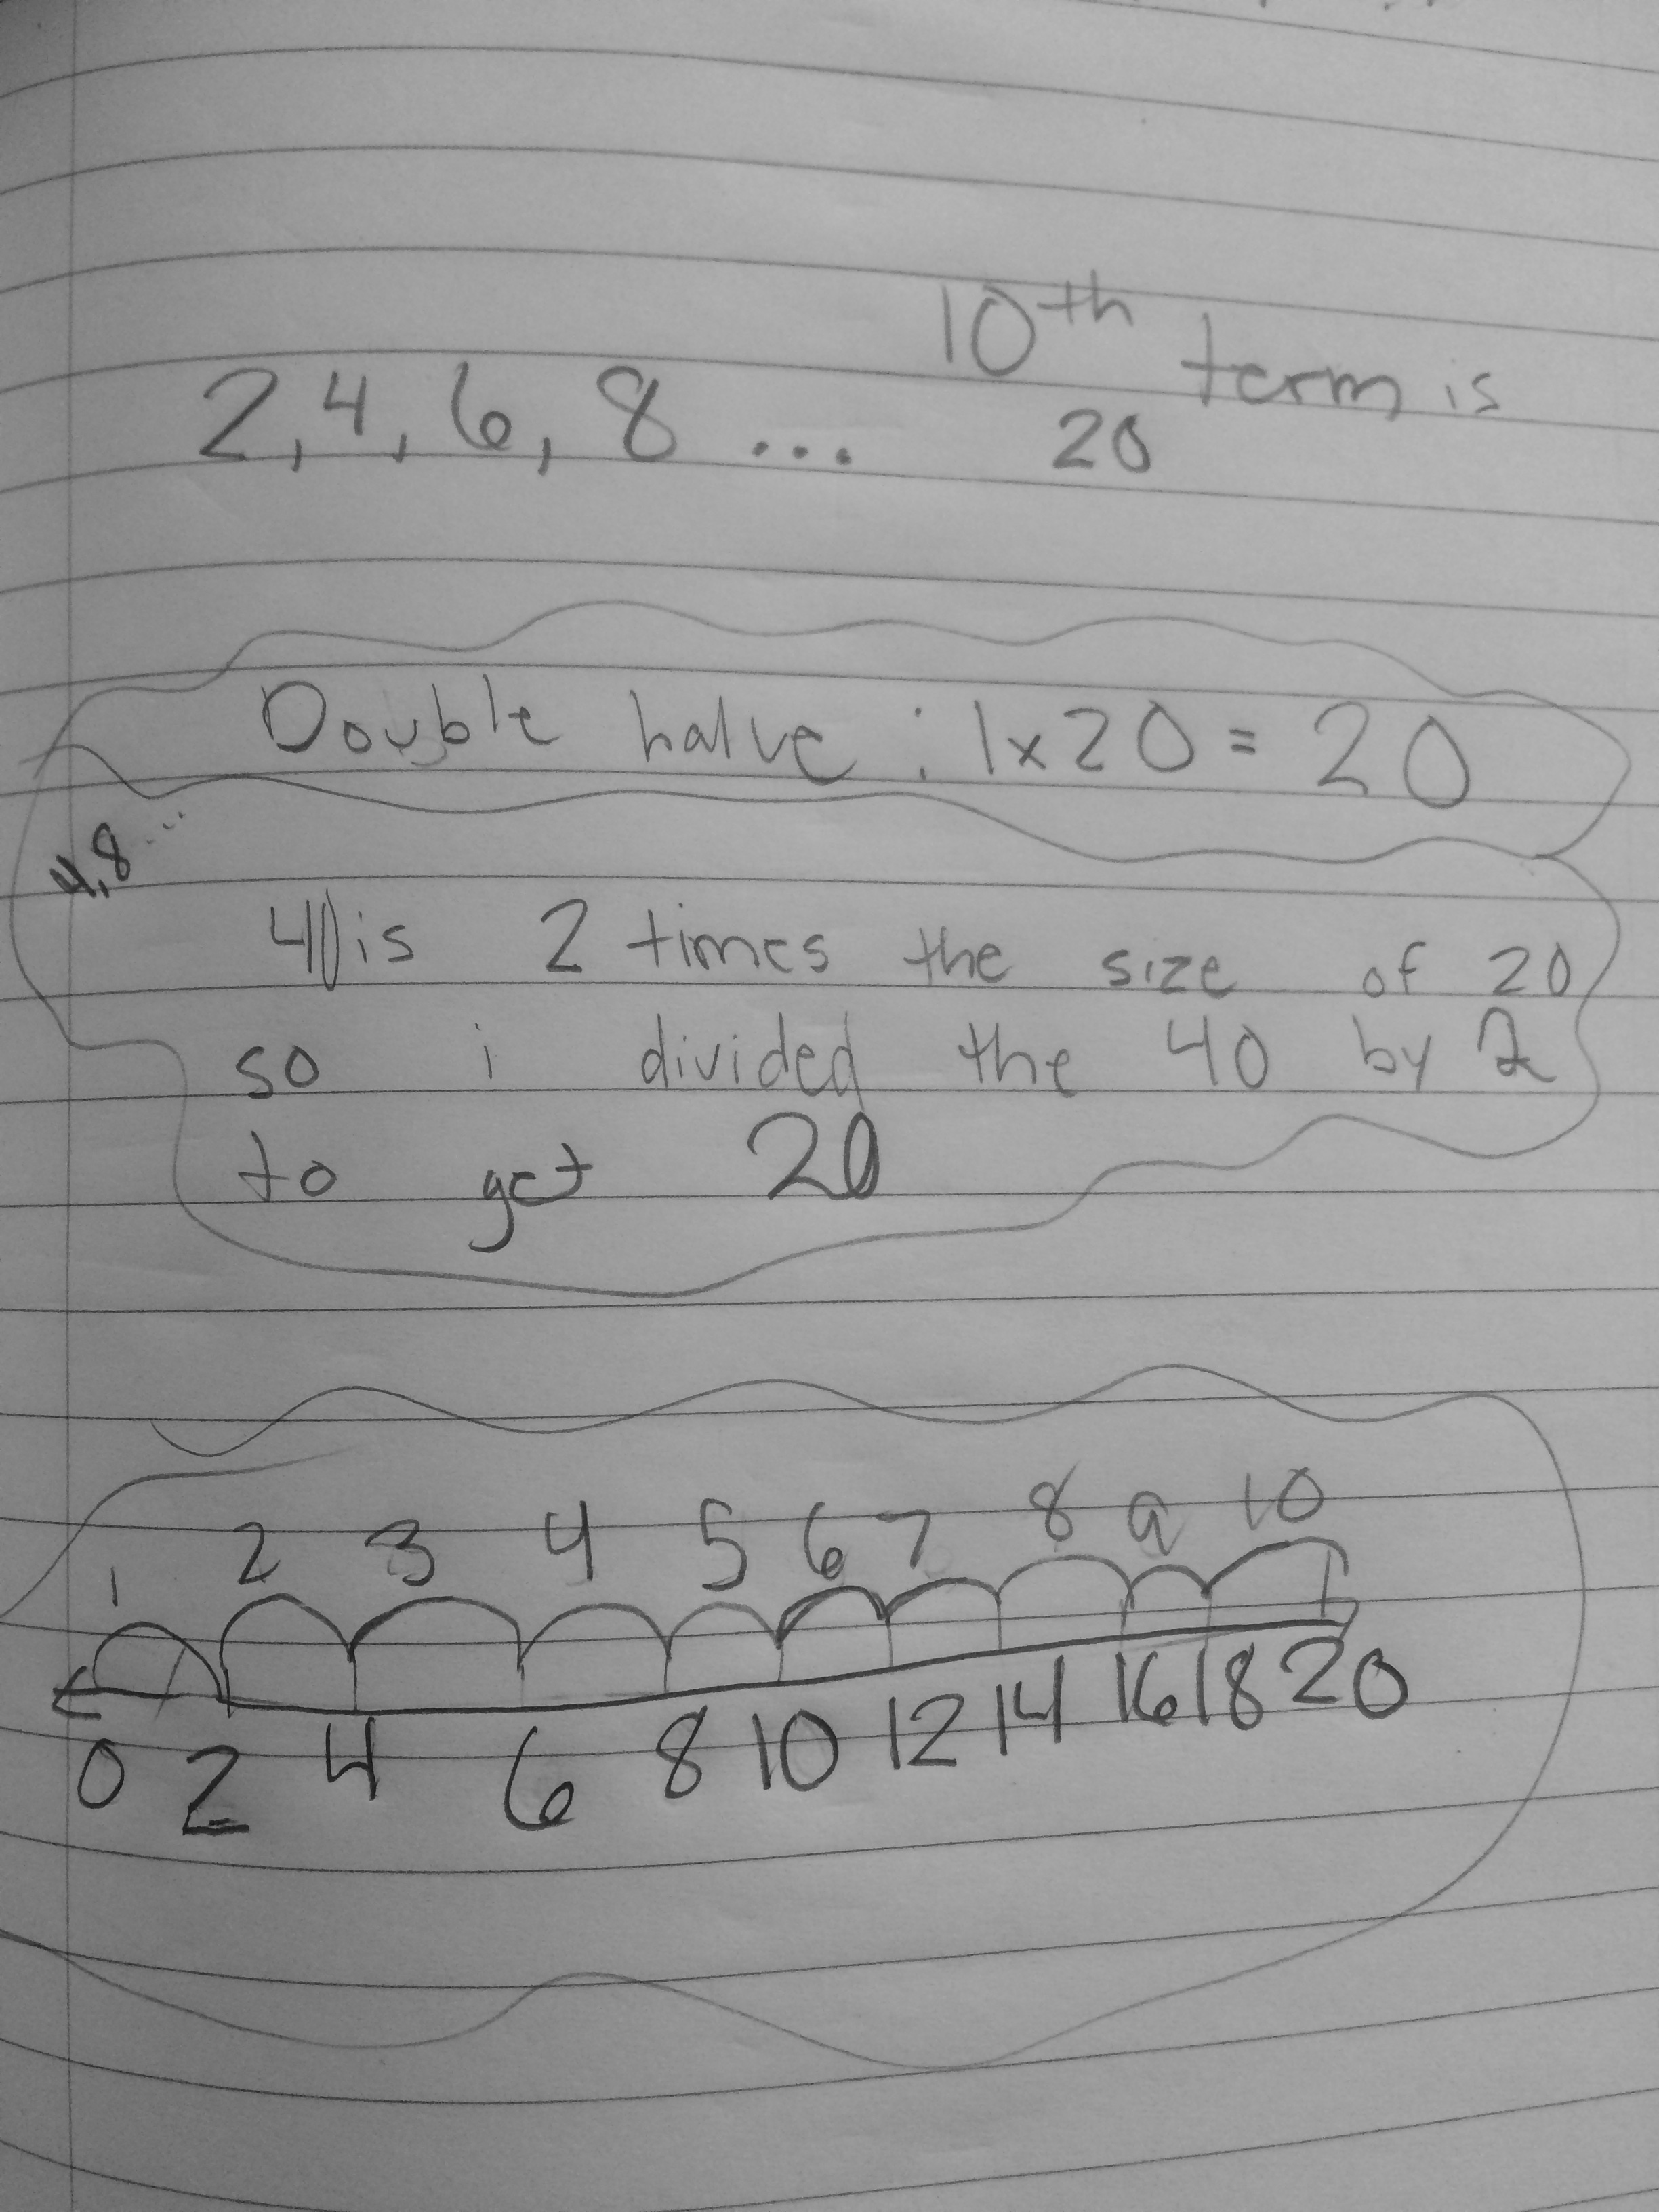 10th term is
2, 4, 6, 8 ... 20
Double halve : 1 x 20 = 20
4, 8 ...
40 is 2 times the size of 20
so i divided the 40 by 2
to get 20
1 2 3 4 5 6 7 8 9 10
0 2 4 6 8 10 12 14 16 18 20